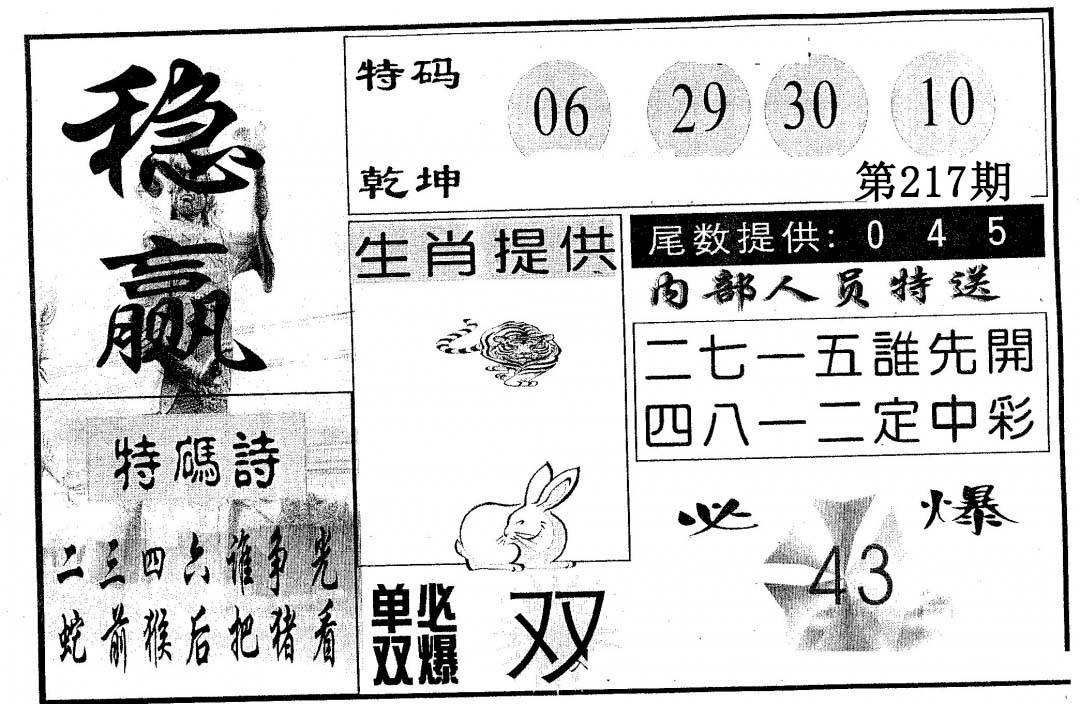 稳赢
特码
06 29 30 10
乾坤
第217期
生肖提供
尾数提供: 0 4 5
内部人员特送
二七一五誰先開
四八一二定中彩
特碼詩
二三四六谁争光
蛇前猴后把猪看
必爆
43
单双必爆
双